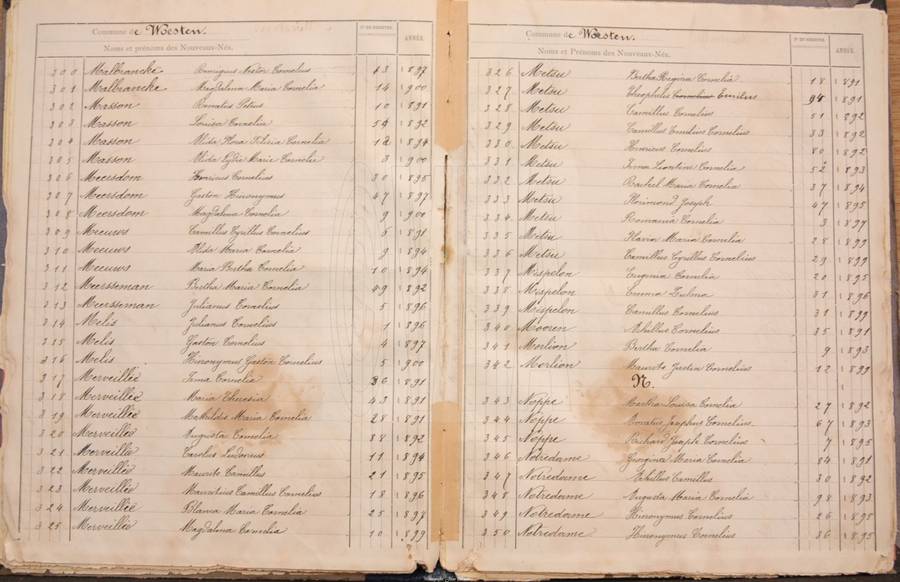 Commune de Westen.
Nº DE REGISTRE.
ANNÉE.
Noms et prénoms des Nouveaux-Nés.
300 Malbrancke Remigius Nestor Cornelius 43 1897
301 Malbrancke Magdalena Maria Cornelia 14 1900
302 Masson Donatus Petrus 10 1891
303 Masson Louisa Cornelia 54 1892
304 Masson Alida Flora Cornelia 12 1894
305 Masson Alida Lydie Marie Cornelie 3 1900
306 Meersdom Henricus Cornelius 30 1895
307 Meersdom Gaston Hieronymus 47 1897
308 Meersdom Magdalena Cornelia 9 1900
309 Meeuws Camillus Cyrillus Cornelius 5 1891
310 Meeuws Alida Maria Cornelia 9 1894
311 Meeuws Maria Bertha Cornelia 10 1894
312 Meersseman Bertha Maria Cornelia 49 1892
313 Meersseman Julianus Cornelius 5 1896
314 Melis Julianus Cornelius 1 1896
315 Melis Gaston Cornelius 4 1897
316 Melis Hieronymus Gaston Cornelius 5 1900
317 Merveillée Irma Cornelia 36 1891
318 Merveillée Maria Theresia 43 1891
319 Merveillée Mathildis Maria Cornelia 28 1891
320 Merveillée Augusta Cornelia 88 1892
321 Merveillée Carolus Ludovicus 11 1894
322 Merveillée Maurits Camillus 21 1895
323 Merveillée Mauritius Camillus Cornelius 18 1896
324 Merveillée Blanca Maria Cornelia 25 1897
325 Merveillée Magdalena Cornelia 10 1899
Commune de Westen.
Nº DE REGISTRE.
ANNÉE.
Noms et Prénoms des Nouveaux-Nés.
326 Metsu Bertha Regina Cornelia 18 1891
327 Metsu Theophilus Cornelius Emilius 94 1891
328 Metsu Camillus Cornelius 51 1892
329 Metsu Camillus Emilius Cornelius 33 1892
330 Metsu Henricus Cornelius 80 1892
331 Metsu Irma Leontina Cornelia 52 1893
332 Metsu Rachel Maria Cornelia 37 1894
333 Metsu Florimond Joseph 47 1895
334 Metsu Romania Cornelia 3 1897
335 Metsu Flavia Maria Cornelia 28 1899
336 Metsu Camillus Cyrillus Cornelius 29 1899
337 Mispelon Eugenia Cornelia 20 1895
338 Mispelon Emma Zulma 31 1896
339 Mispelon Camillus Cornelius 31 1899
340 Mooren Achillus Cornelius 35 1891
341 Morlion Bertha Cornelia 9 1893
342 Morlion Maurits Cornelius 12 1899
N.
343 Noppe Martha Louisa Cornelia 27 1892
344 Noppe Donatus Josephus Cornelius 67 1893
345 Noppe Richard Joseph Cornelius 7 1895
346 Notredame Georgina Maria Cornelia 84 1891
347 Notredame Achillus Camillus 30 1892
348 Notredame Augusta Maria Cornelia 98 1893
349 Notredame Hieronymus Cornelius 26 1895
350 Notredame Hieronymus Cornelius 36 1895